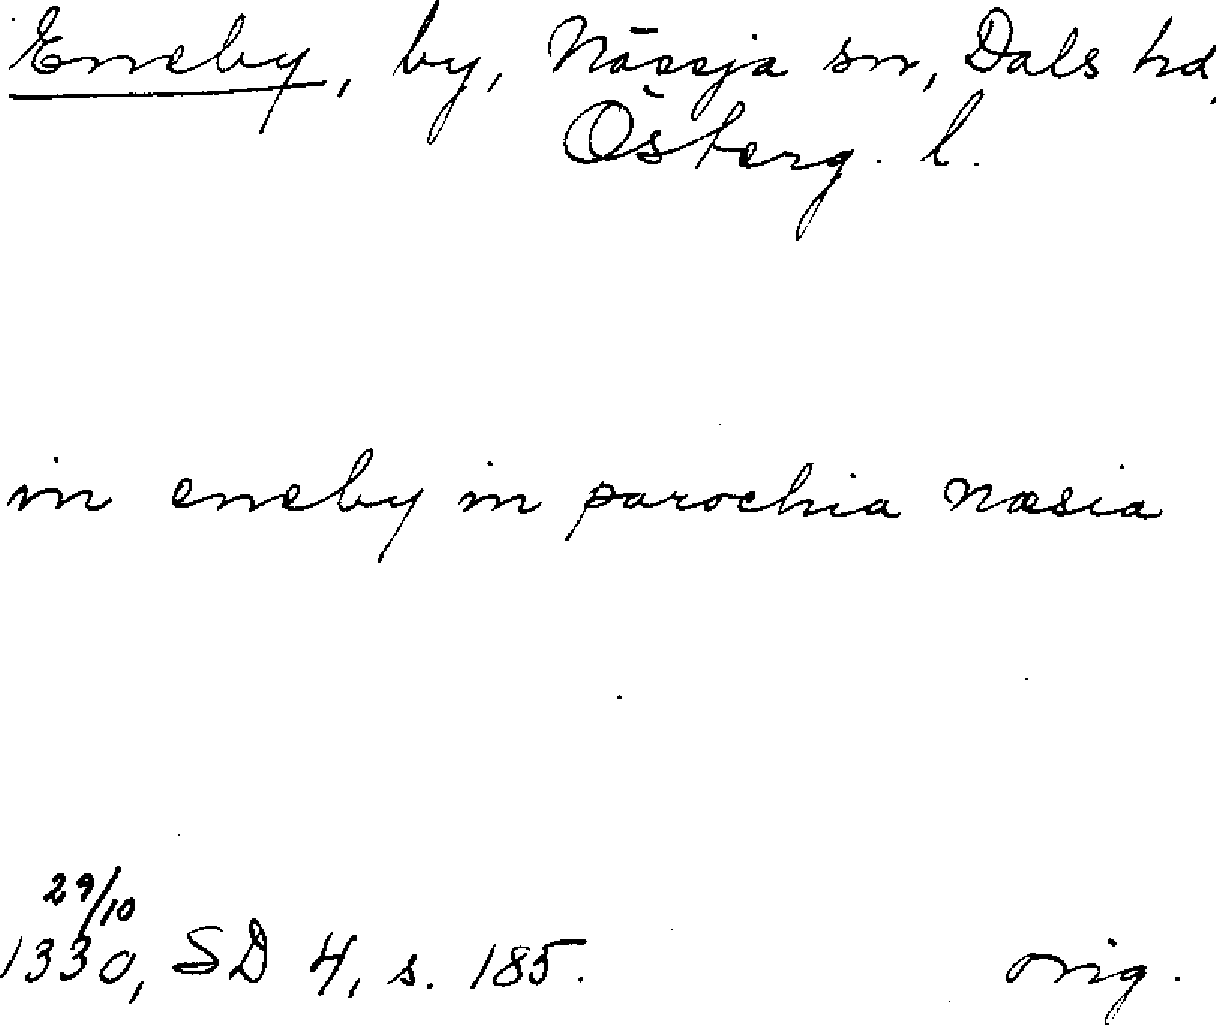 Eneby, by, Nässja sn, Dals hd,
Österg. l.
in eneby in parochia næsia
29/10
1330, SD 4, s. 185.
orig.